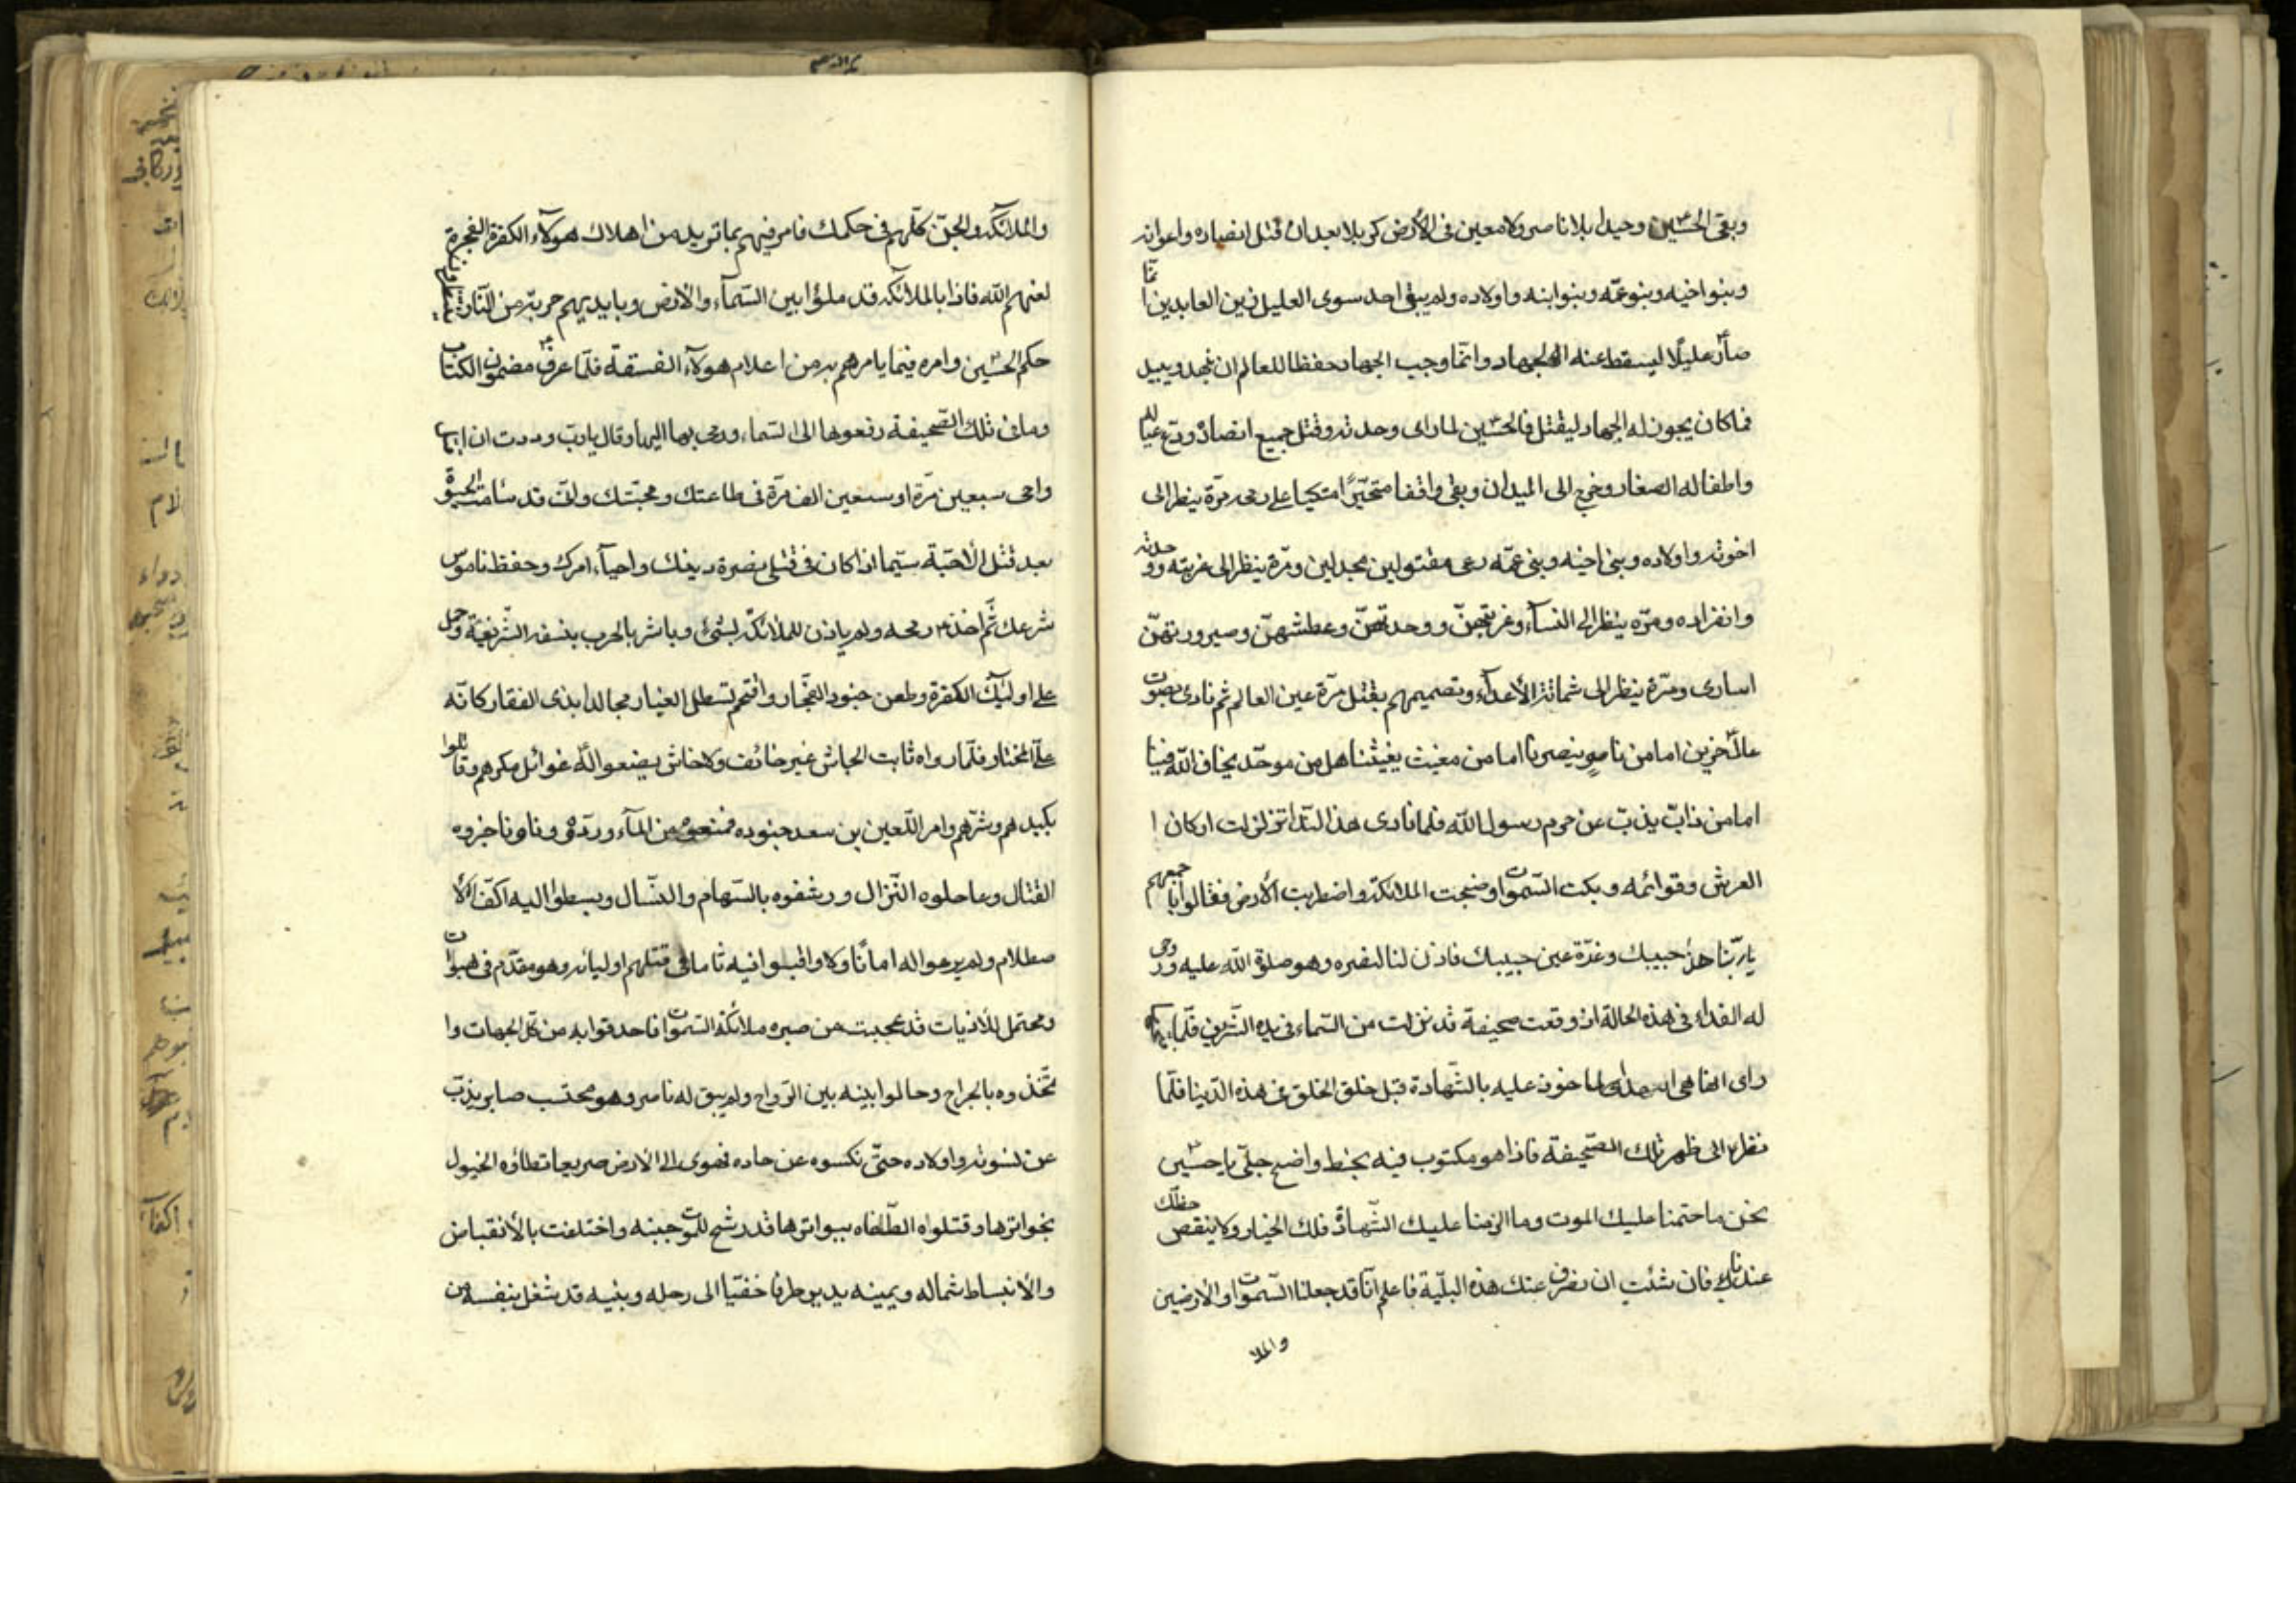 وبقى الحسين وحيدا بلا ناصر ولا معين فى الأرض كربلا بعد ان قتل انصاره واعوانه
وبنو اخيه وبنو عمّه وبنو ابنه واولاده ولم يبق احد سوى العليل زين العابدين
عليلًا ليسقط عنه الجهاد وانّما وجب الجهاد حفظا للعالم ان يمهد ويبيد
فما كان يجوز له الجهاد ليقتل فالحسين لما راى وحدته وقتل جميع انصاره ودّع عياله
واطفاله الصغار وخرج الى الميدان وبقى واقفا متحيّرًا متكيا على رمحه مرّة ينظر الى
اخوته واولاده وبنى اخيه وبنى عمّه صرعى مقتولين مجدلين ومرّة ينظر الى غربته ووحدته
وانفراده ومرّه ينظر الى النسآء وغربتهنّ ووحدتهنّ وعطشهنّ وصيرورتهنّ
اسارى ومرّة ينظر الى شماتة الأعدآء وتصميمهم بقتل مرّة عين العالم ثم نادى بصوت
عال حزين اما من ناصر ينصرنا اما من مغيث يغيثنا هل من موحّد يخاف اللّه فينا
اما من ذابّ يذبّ عن حرم رسول اللّه فلما نادى هذا النّدا تزلزلت اركان ا
العرش وقوائمه وبكت السّموات وضجت الملائكة واضطربت الأرض فقالوا باجمعهم
ياربّنا هذا حبيبك وقرّة عين حبيبك فاذن لنا لنصره وهو صلوة اللّه عليه وروحى
له الفداء فى هذه الحالة اذ وقعت صحيفة قد نزلت من السّماء فى يده الشّريفة فلمّا
راى انها هى الماخوذ عليه بالشّهادة قبل خلق الخلق فى هذه الدّنيا فلمّا
نظر الى ظهر تلك الصّحيفة فاذا هو مكتوب فيه بخط واضح جلىّ يا حسين
نحن ما حتمنا عليك الموت وما الزمنا عليك الشّهادة فلك الخيار ولا ينقص حظّك
عندنا فان شئت ان نصرف عنك هذه البليّة فاعلم انّا قد جعلنا السّموات والأرضين
والملا
والملائكة والجنّ كلّهم فى حكمك فامر فيهم بما تريد من اهلاك هولآء الكفرة الفجرة
لعنهم اللّه فاذا بالملائكة قد ملؤا بين السّمآء والارض وبايديهم حربة من النّار ينتظرون
حكم الحسين وامره فيما يامرهم به من اعدام هولآء الفسقة فلمّا عرف مضمون الكتاب
وما فى تلك الصّحيفة رفعوها الى السّماء ورمى بها اليها وقال ياربّ وددت ان اقتل
واحى سبعين مرّة او سبعين الف مرّة فى طاعتك ومحبّتك وانّى قد سأمت الحيوة
بعد قتل الأحبّة سيّما اذا كان فى قتلى نصرة دينك واحيآء امرك وحفظ ناموس
شرعك ثّم اخذ رمحه ولم ياذن للملائكة بشىء وباشر بالحرب بنفسه الشّريفة وحمل
على اولئك الكفرة وطعن جنود الفجّار واقتحم قسطل الغبار مجالدا بذى الفقار كانّه
علىّ المختار فلمّا راوه ثابت الجاش غير خائف ولا خاش نصبوا له غوائل مكرهم وقاتلوا
بكيدهم وشرّهم وامر اللّعين بن سعد جنوده فمنعوه من المآء ووروده وناجزوه
القتال وعاجلوه النّزال ورشقوه بالسّهام والنّبال وبسطوا اليه اكفّ الا
صطلام ولم يرعوا له امانًا ولا راقبوا فيه ثاما فى قتلهم اوليائه وهو مقدّم فى الهبوات
ومحتمل للاذيات قد عجبت من صبره ملائكة السّموات فاحدقوا به من كلّ الجهات وا
تّخذوه بالجراح وحالوا بينه بين الرّواح ولم يبق له ناصر وهو محتسب صابر يذبّ
عن نسوته واولاده حتّى نكسوه عن جواده فهوى الى الارض صريعا تطاؤه الخيول
بحوافرها وقتلوه الطّغاه ببواترها قد رشح للموت جبينه واختلفت بالأنقباض
والأنبساط شماله ويمينه يدير طرفا خفيّا الى رحله وبنيه قد شغل بنفسه من